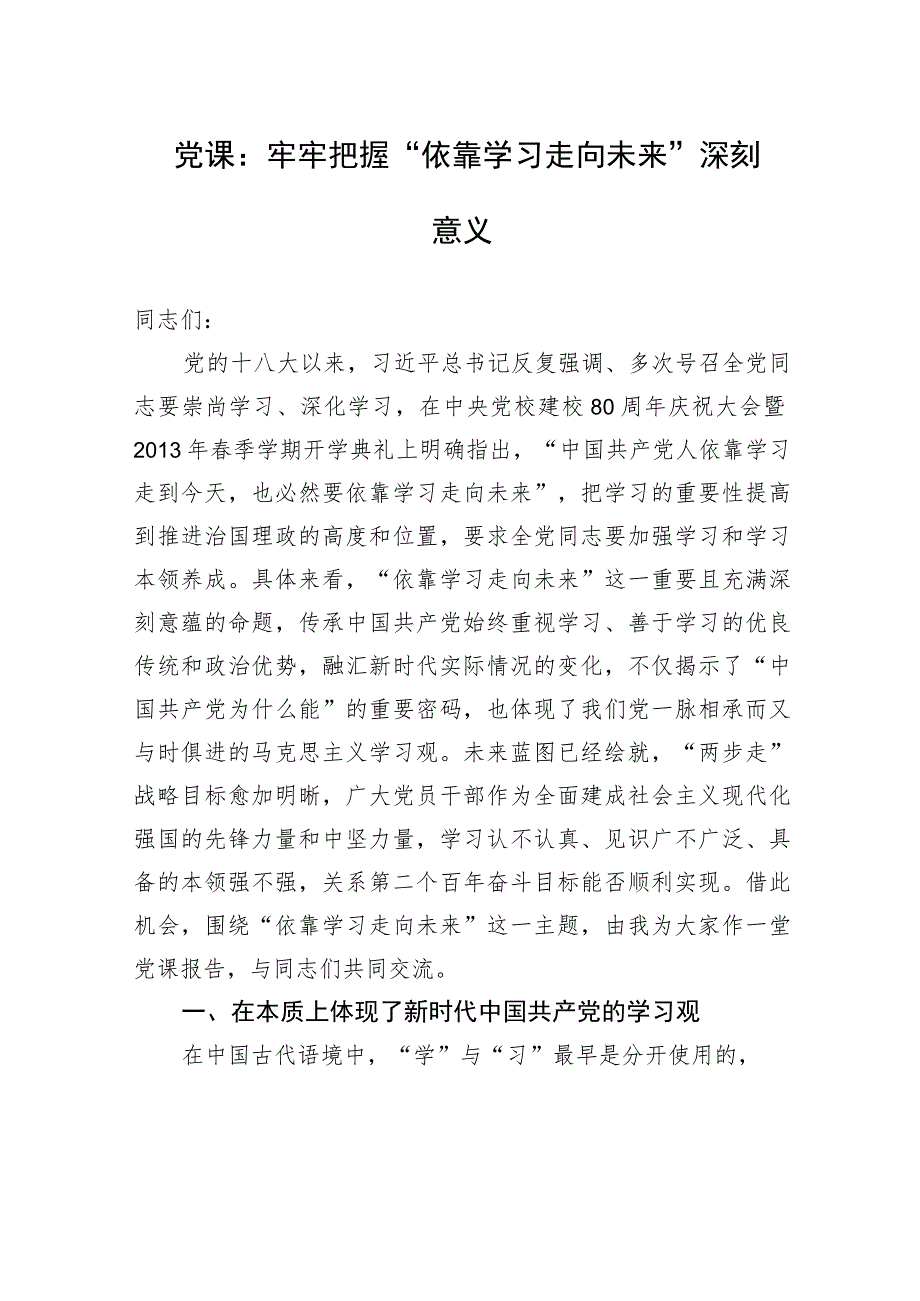 党课：牢牢把握“依靠学习走向未来”深刻
意义
同志们：
党的十八大以来，习近平总书记反复强调、多次号召全党同
志要崇尚学习、深化学习，在中央党校建校 80 周年庆祝大会暨
2013 年春季学期开学典礼上明确指出，“中国共产党人依靠学习
走到今天，也必然要依靠学习走向未来”，把学习的重要性提高
到推进治国理政的高度和位置，要求全党同志要加强学习和学习
本领养成。具体来看，“依靠学习走向未来”这一重要且充满深
刻意蕴的命题，传承中国共产党始终重视学习、善于学习的优良
传统和政治优势，融汇新时代实际情况的变化，不仅揭示了“中
国共产党为什么能”的重要密码，也体现了我们党一脉相承而又
与时俱进的马克思主义学习观。未来蓝图已经绘就，“两步走”
战略目标愈加明晰，广大党员干部作为全面建成社会主义现代化
强国的先锋力量和中坚力量，学习认不认真、见识广不广泛、具
备的本领强不强，关系第二个百年奋斗目标能否顺利实现。借此
机会，围绕“依靠学习走向未来”这一主题，由我为大家作一堂
党课报告，与同志们共同交流。
一、在本质上体现了新时代中国共产党的学习观
在中国古代语境中，“学”与“习”最早是分开使用的，